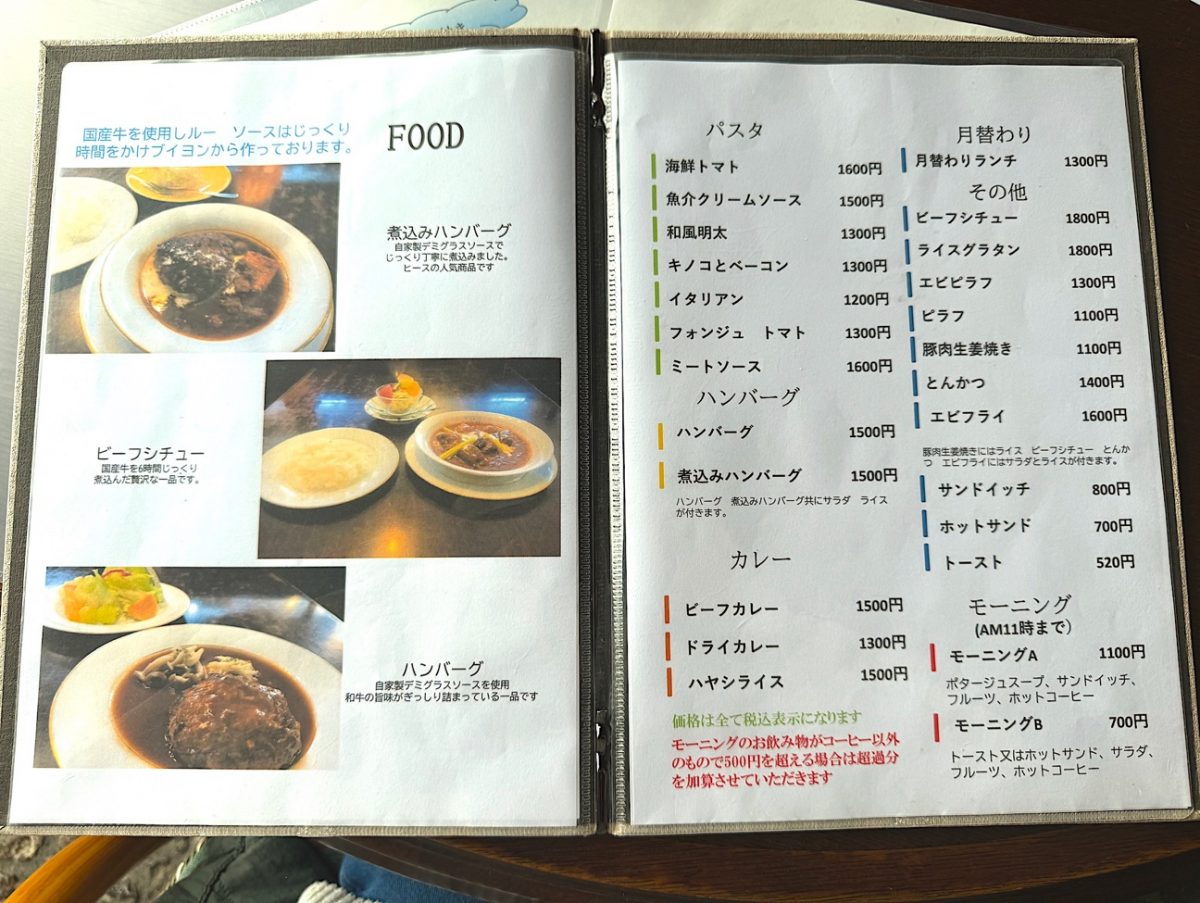 国産牛を使用しルー　ソースはじっくり
時間をかけブイヨンから作っております。
FOOD
煮込みハンバーグ
自家製デミグラスソースで
じっくり丁寧に煮込みました。
ヒースの人気商品です
ビーフシチュー
国産牛を6時間じっくり
煮込んだ贅沢な一品です。
ハンバーグ
自家製デミグラスソースを使用
和牛の旨味がぎっしり詰まっている一品です
パスタ
海鮮トマト 1600円
魚介クリームソース 1500円
和風明太 1300円
キノコとベーコン 1300円
イタリアン 1200円
フォンジュ　トマト 1300円
ミートソース 1600円
ハンバーグ
ハンバーグ 1500円
煮込みハンバーグ 1500円
ハンバーグ　煮込みハンバーグ共にサラダ　ライス
が付きます。
カレー
ビーフカレー 1500円
ドライカレー 1300円
ハヤシライス 1500円
価格は全て税込表示になります
モーニングのお飲み物がコーヒー以外
のもので500円を超える場合は超過分
を加算させていただきます
月替わり
月替わりランチ 1300円
その他
ビーフシチュー 1800円
ライスグラタン 1800円
エビピラフ 1300円
ピラフ 1100円
豚肉生姜焼き 1100円
とんかつ 1400円
エビフライ 1600円
豚肉生姜焼きにはライス　ビーフシチュー　とんか
つ　エビフライにはサラダとライスが付きます。
サンドイッチ 800円
ホットサンド 700円
トースト 520円
モーニング
(AM11時まで)
モーニングA 1100円
ポタージュスープ、サンドイッチ、
フルーツ、ホットコーヒー
モーニングB 700円
トースト又はホットサンド、サラダ、
フルーツ、ホットコーヒー